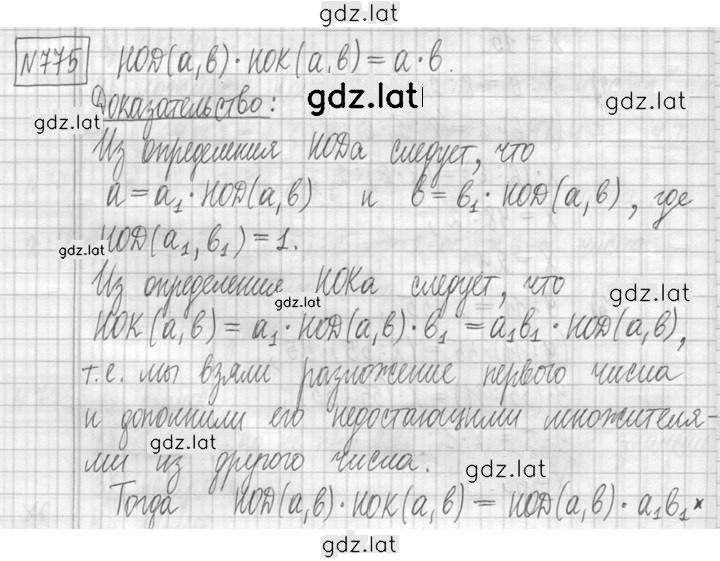 gdz.lat
№775 НОД(а,в)·НОК(а,в)=а·в.
Доказательство: gdz.lat gdz.lat
gdz.lat
Из определения НОДа следует, что
а=а₁·НОД(а,в) и в=в₁·НОД(а,в), где
gdz.lat НОД(а₁,в₁)=1.
Из определение НОКа следует, что
gdz.lat gdz.lat
НОК(а,в)=а₁·НОД(а,в)·в₁=а₁в₁·НОД(а,в),
т.е. мы взяли разложение первого числа
и дополнили его недостающими множителя-
gdz.lat
ми из другого числа. gdz.lat
Тогда НОД(а,в)·НОК(а,в)=НОД(а,в)·а₁в₁×
gdz.lat